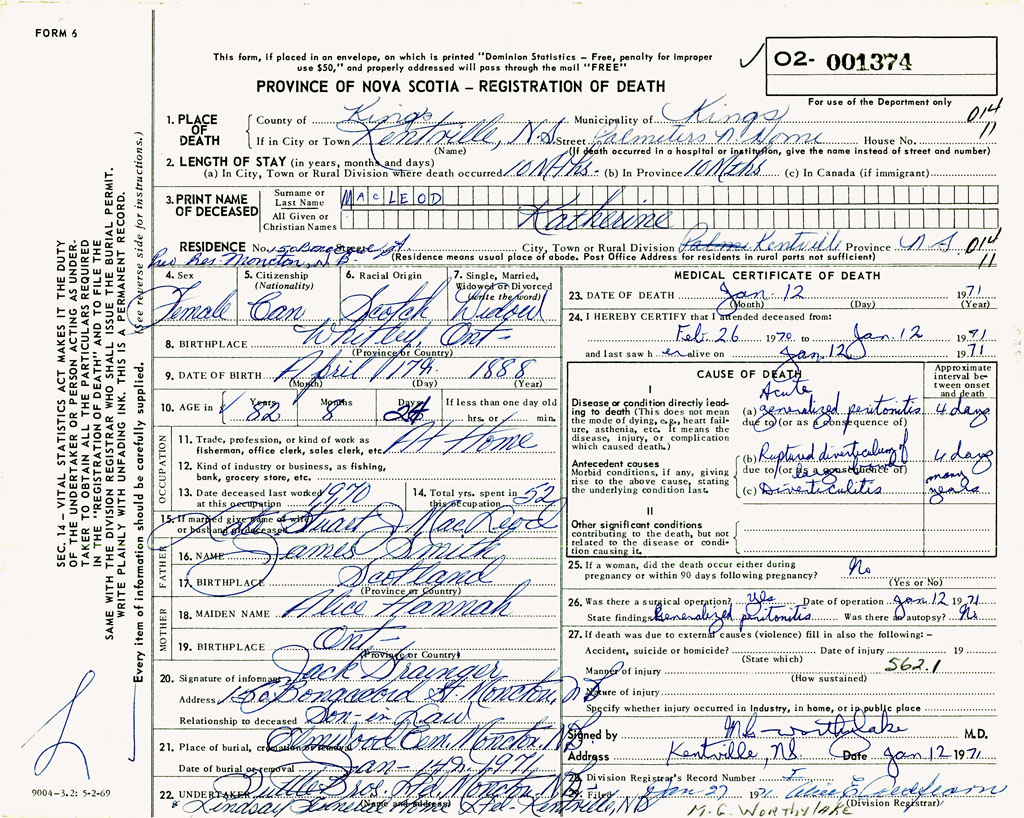 FORM 6
This form, if placed in an envelope, on which is printed "Dominion Statistics – Free, penalty for improper
use $50," and properly addressed will pass through the mail "FREE"
PROVINCE OF NOVA SCOTIA – REGISTRATION OF DEATH
O2- 001374
For use of the Department only
014
11
1. PLACE OF DEATH County of Kings Municipality of Kings
If in City or Town Kentville, N.S. Street Palmeters N. Home House No.
(Name) (If death occurred in a hospital or institution, give the name instead of street and number)
2. LENGTH OF STAY (in years, months and days)
(a) In City, Town or Rural Division where death occurred 10 Mths. (b) In Province 10 Mths (c) In Canada (if immigrant)
3. PRINT NAME OF DECEASED Surname or Last Name MACLEOD
All Given or Christian Names Katherine
RESIDENCE No. 50 St City, Town or Rural Division Kentville Province N S 014
11
Moncton, N.B. (Residence means usual place of abode. Post Office Address for residents in rural ports not sufficient)
4. Sex Female
5. Citizenship (Nationality) Can
6. Racial Origin Scotch
7. Single, Married, Widowed or Divorced (write the word) Widow
8. BIRTHPLACE Whitley, Ont-
(Province or Country)
9. DATE OF BIRTH April 17th. 1888
(Month) (Day) (Year)
10. AGE in Years 82 Months 8 Days 24 If less than one day old hrs. or min.
OCCUPATION
11. Trade, profession, or kind of work as fisherman, office clerk, sales clerk, etc. At Home
12. Kind of industry or business, as fishing, bank, grocery store, etc.
13. Date deceased last worked at this occupation 1970
14. Total yrs. spent in this occupation 52
15. If married give name of wife or husband of deceased Stuart J MacLeod
FATHER
16. NAME James Smith
17. BIRTHPLACE Scotland
(Province or Country)
MOTHER
18. MAIDEN NAME Alice Hannah
19. BIRTHPLACE Ont-
(Province or Country)
20. Signature of informant Jack Drainger
Address St. Moncton, N.B.
Relationship to deceased Son-in Law
21. Place of burial, cremation or removal Elmwood Cem. Moncton, N.B.
Date of burial or removal Jan- 14th. 1971
22. UNDERTAKER Tuttle Bros. Ltd., Moncton, N.B.
& Lindsay Funeral Home Ltd- Kentville, NS
(Name and address)
MEDICAL CERTIFICATE OF DEATH
23. DATE OF DEATH Jan. 12 1971
(Month) (Day) (Year)
24. I HEREBY CERTIFY that I attended deceased from:
Feb. 26 1970 to Jan. 12 1971
and last saw her alive on Jan. 12 1971
CAUSE OF DEATH
Approximate interval between onset and death
I
Disease or condition directly leading to death (This does not mean the mode of dying, e.g., heart failure, asthenia, etc. It means the disease, injury, or complication which caused death.)
(a) Acute generalized peritonitis 4 days
due to (or as a consequence of)
Antecedent causes
Morbid conditions, if any, giving rise to the above cause, stating the underlying condition last.
(b) Ruptured diverticulum of large bowel 4 days
due to (or as a consequence of)
(c) Diverticulitis many years
II
Other significant conditions contributing to the death, but not related to the disease or condition causing it.
25. If a woman, did the death occur either during pregnancy or within 90 days following pregnancy? No
(Yes or No)
26. Was there a surgical operation? yes Date of operation Jan 12 1971
State findings Generalized peritonitis Was there an autopsy? No
27. If death was due to external causes (violence) fill in also the following: –
Accident, suicide or homicide? Date of injury 19
(State which)
Manner of injury 562.1
(How sustained)
Nature of injury
Specify whether injury occurred in Industry, in home, or in public place
Signed by M G Worthylake M.D.
Address Kentville, N.S. Date Jan 12 1971
28. Division Registrar's Record Number
29. Filed Jan 27 1971
(Division Registrar)
M. G. WORTHYLAKE
SEC. 14 – VITAL STATISTICS ACT MAKES IT THE DUTY
OF THE UNDERTAKER OR PERSON ACTING AS UNDER-
TAKER TO OBTAIN ALL THE PARTICULARS REQUIRED
IN THE "REGISTRATION OF DEATH" AND TO FILE THE
SAME WITH THE DIVISION REGISTRAR WHO SHALL ISSUE THE BURIAL PERMIT.
WRITE PLAINLY WITH UNFADING INK. THIS IS A PERMANENT RECORD.
Every item of information should be carefully supplied. (See reverse side for instructions.)
9004–3.2: 5-2-69